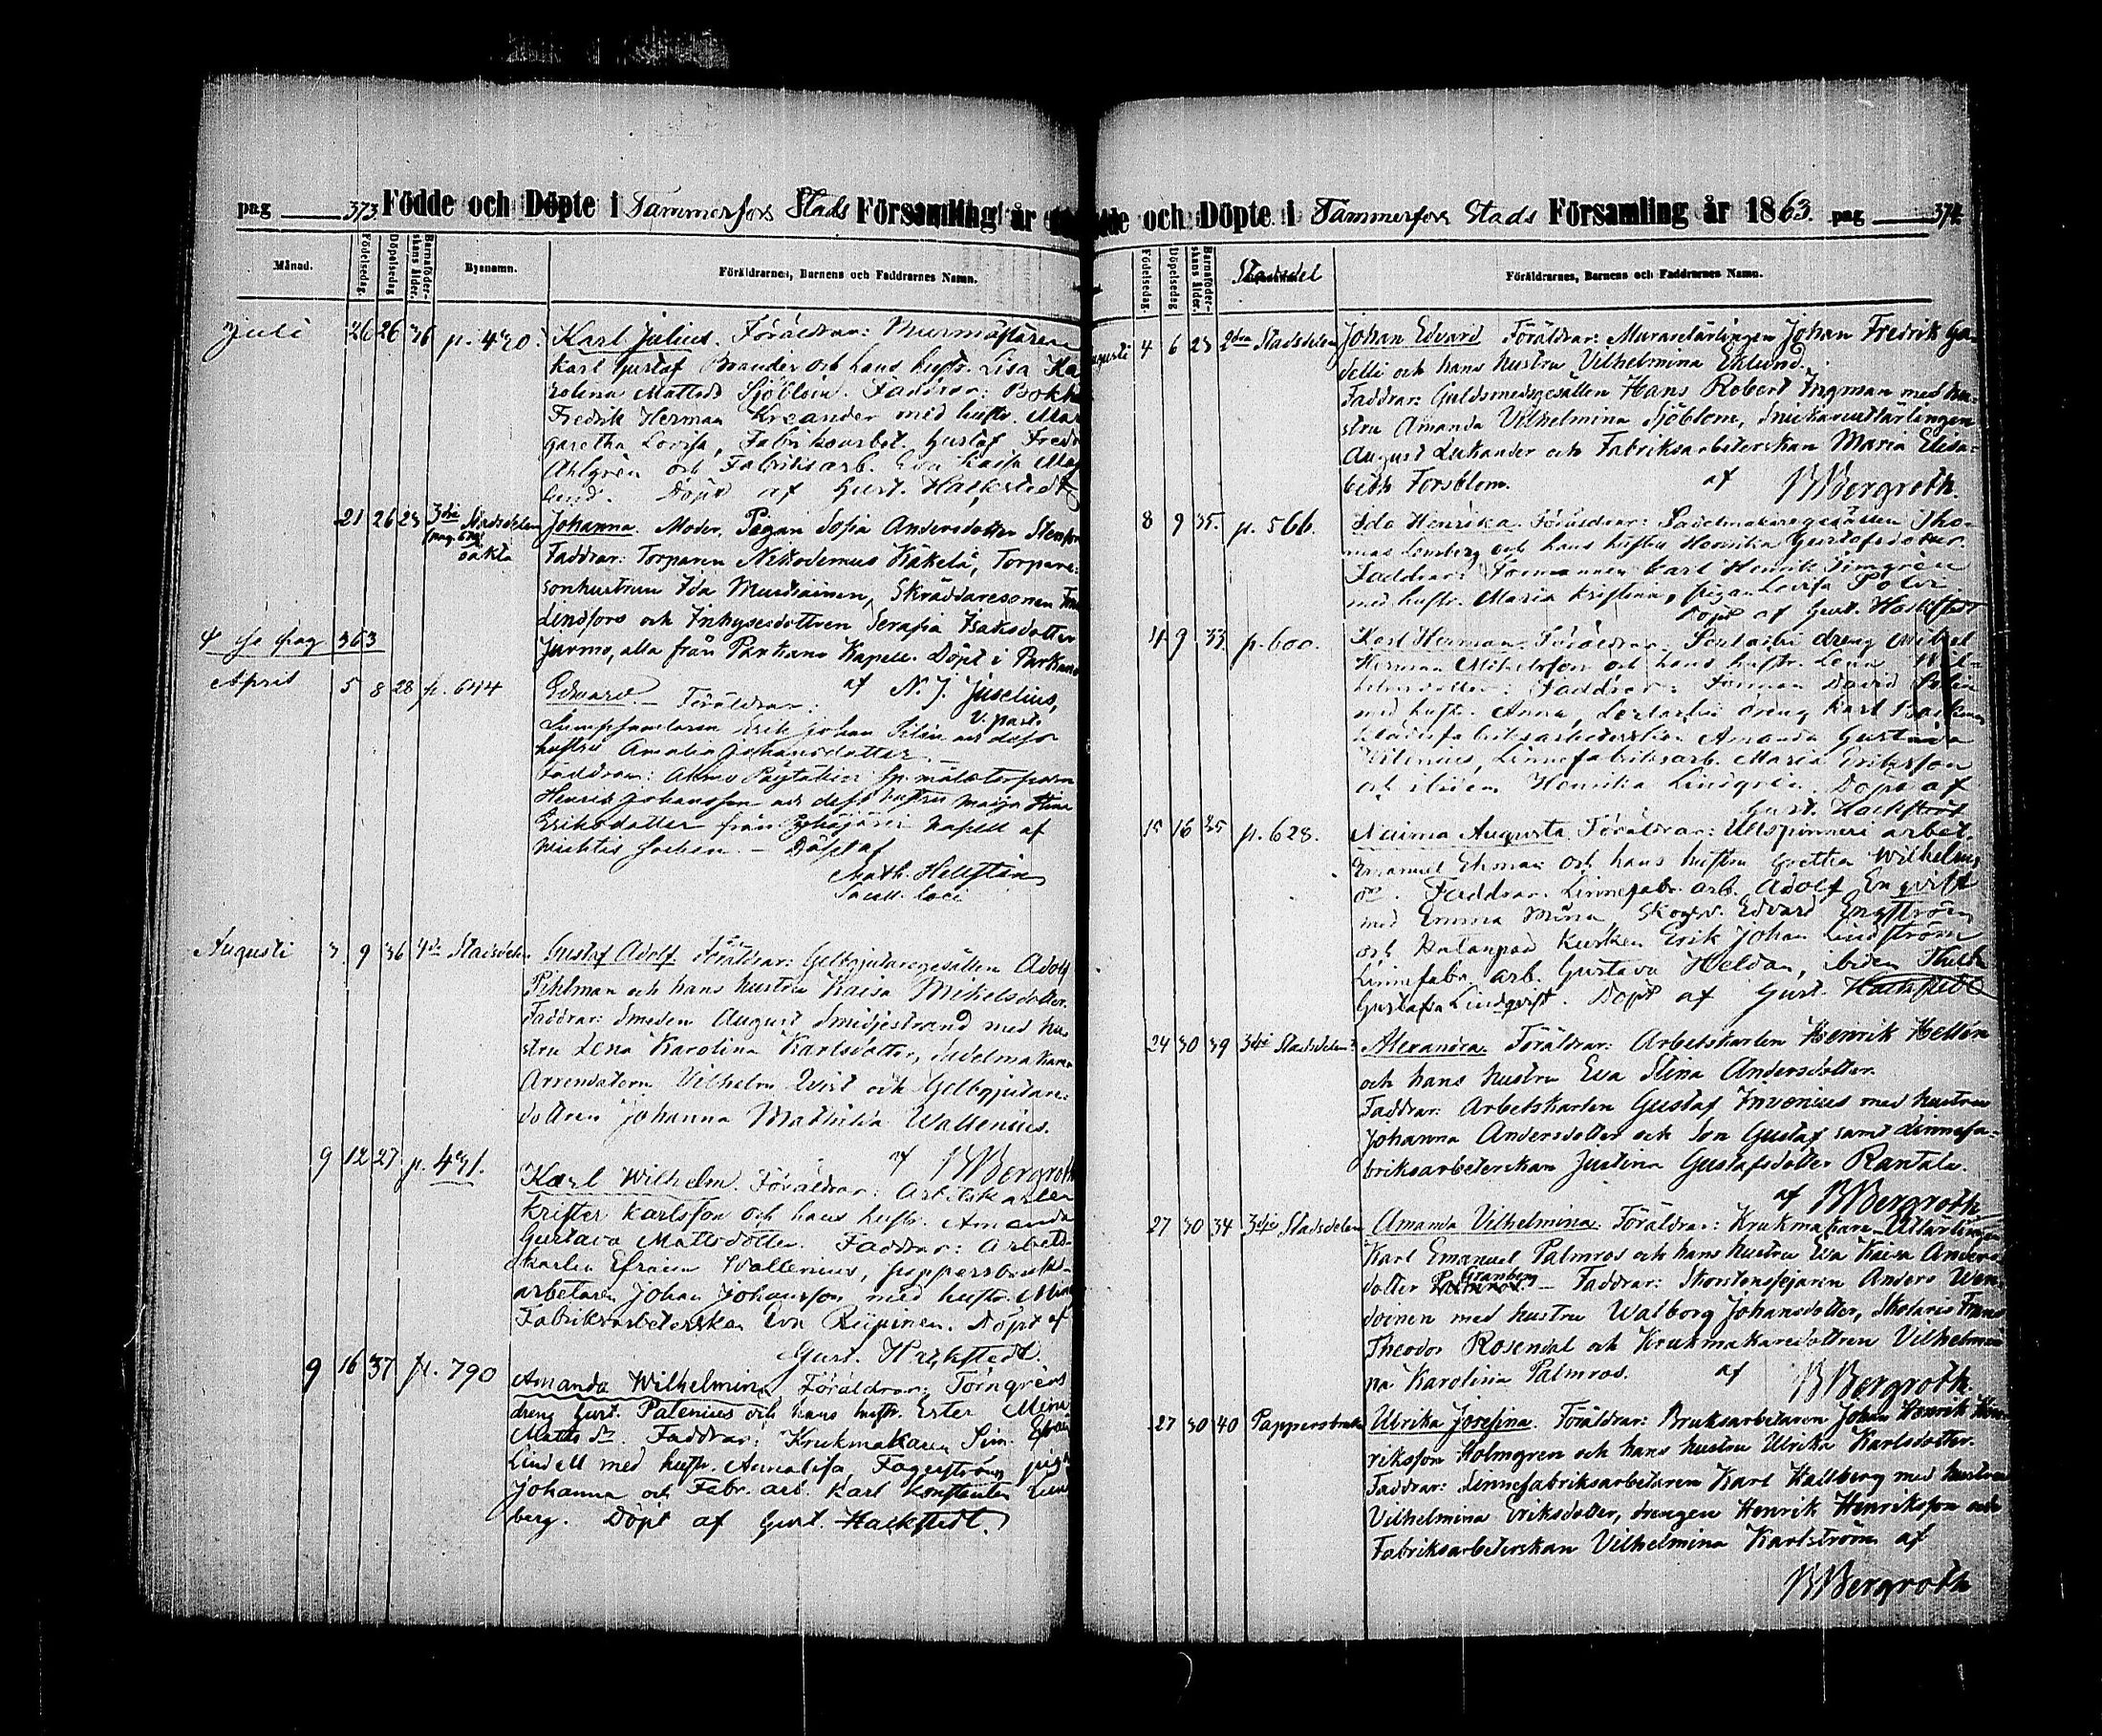 pag 373 Födde och Döpte i Tammerfors Stads Församling år
Månad. Födelsedag. Döpelsedag Barnaföderskans ålder. Bysnamn. Föräldrarnes, Barnens och Faddrarnes Namn.
Juli 26 26 36 p. 420. Karl Julius. Föräldrar: Murmästaren
Karl Gustaf Brander och hans hustr. Lisa Ka
rolina Mattsdr Sjöblom. Faddrar: Bokh
Fredrik Herman Kreander med hustr. Mar
garetha Lovisa, Fabriksarbet. Gustaf Fredr
Ahlgrén och Fabriksarb. Eva Kaisa
lund. Döpt af Gust. Hackstedt
21 26 23 3dje Stadsdelen Johanna. Moder, Pigan Sofia Andersdotter
oäkta Faddrar: Torparen Nikodemus Kakelä, Torpare-
sonhustrun Ida Murdiainen, Skräddaresonen
Lindfors och Inhysesdottren Serafia Isaksdotter
Jurmo, alla från Parkano Kapell. Döpt i Parkano
af N. J. Juselius,
v. past.
se pag 363
April 5 8 28 p. 644 Edvard. - Föräldrar:
Erik Johan Silén och dess
hustru Amalia Johansdotter. -
Faddrar:
Henrik Johansson och dess hustru Maija Stina
Eriksdotter från Pyhäjärvi Kapell af
Socken. - Döpt af
Math. Hellstén
Sacell. loci
Augusti 3. 9 36 4de Stadsdelen Gustaf Adolf. Föräldrar: Gelbgjutaregesällen Adolf
Pihlman och hans hustru Kaisa Mikelsdotter.
Faddrar: Smeden August Smidjestrand med hu
stru Lena Karolina Karlsdotter, Sadelmakare
Arrendatorn Vilhelm Qvist och Gelbgjutare-
dottren Johanna Mathilda Wallenius.
af B Bergroth
9 12 27 p. 491. Karl Wilhelm. Föräldrar: Arbetskarlen
Krister Karlsson och hans hustr. Amanda
Gustava Mattsdotter. Faddrar: Arbets-
karlen Efraim Wallenius, pappersbruks-
arbetaren Johan Johansson med hustr. Mina
Fabriksarbeterskan Eva Riipinen. Döpt af
Gust. Hackstedt.
9 16 37 p. 790 Amanda Wilhelmina. Föräldrar: Törngrens
dreng Gust. Palenius och hans hustr. Ester Mina
Matts dr. Faddrar: Krukmakaren Sim. Efraim
Lindell med hustr. Annalisa Fagerström, pig
Johanna och Fabr. arb. Karl Konstantin Lund
berg. Döpt af Gust. Hackstedt.
och Döpte i Tammerfors Stads Församling år 1863. pag 374
Födelsedag. Döpelsedag Barnaföderskans ålder. Stadsdel Föräldrarnes, Barnens och Faddrarnes Namn.
Augusti 4 6 23 2dra Stadsdelen Johan Edvard. Föräldrar: Murarelärlingen Johan Fredrik Ga-
delli och hans hustru Vilhelmina Eklund.
Faddrar: Guldsmedsgesällen Hans Robert Ingman med hu-
stru Amanda Vilhelmina Sjöblom, Snickarelärlingen
August Lukander och Fabriksarbeterskan Maria Elisa-
beth Forsblom. af B Bergroth.
8 9 35. p. 566. Ida Henrika. Föräldrar: Sadelmakaregesällen Tho-
mas Lemberg och hans hustru Henrika Gustafsdotter.
Faddrar: Formannen Karl Henrik Timgrén
med hustr. Maria Kristina, pigan Lovisa
Döpt af Gust. Hackstedt
4 9 33 p. 600. Karl Herman. Föräldrar: dreng Mikel
Herman Mikelsson och hans hustr. Lena Wil-
helmsdotter. Faddrar: Forman David
med hustr. Anna, dreng Karl
Klädesfabriksarbeterskan Amanda Gustava
Linnefabriksarb. Maria Eriksson
och ibidem Henrika Lindgrén. Döpt af
Gust. Hackstedt
15 16 25 p. 628. Naima Augusta. Föräldrar: Ullspinneri arbet.
Emanuel Ekman och hans hustru Gretha Wilhelms
dr. Faddrar. Linnefabr. arb. Adolf Enqvist
med Emma Mina, Skogsv. Edvard Engström
och Hatanpää Kusken Erik Johan Lindström
Linnefabr. arb. Gustava Heldan, ibidem Thilda
Gustafva Lindqvist. Döpt af Gust. Hackstedt
24 30 39 3dje Stadsdelen Alexandra. Föräldrar: Arbetskarlen Henrik Hellén
och hans hustru Eva Stina Andersdotter.
Faddrar: Arbetskarlen Gustaf Invenius med hustru
Johanna Andersdotter och Son Gustaf samt Linnefa-
briksarbeterskan Justina Gustafsdotter Rantala.
af B Bergroth
27 30 34 3dje Stadsdelen Amanda Vilhelmina. Föräldrar: Krukmakare
Karl Emanuel Palmros och hans hustru Eva Kaisa Anders
dotter Granberg - Faddrar: Skorstensfejaren Anders Wen-
doinen med hustru Walborg Johansdotter, Skolaris Frans
Theodor Rosendal och Krukmakaredottren Vilhelmi
na Karolina Palmros. af B Bergroth.
27 30 40 Pappersbruket Ulrika Josefina. Föräldrar: Bruksarbetaren Johan Henrik Hen-
riksson Holmgren och hans hustru Ulrika Karlsdotter.
Faddrar: Linnefabriksarbetaren Karl Hallberg med hustru
Vilhelmina Eriksdotter, drengen Henrik Henriksson och
Fabriksarbeterskan Vilhelmina Karlström af
B Bergroth